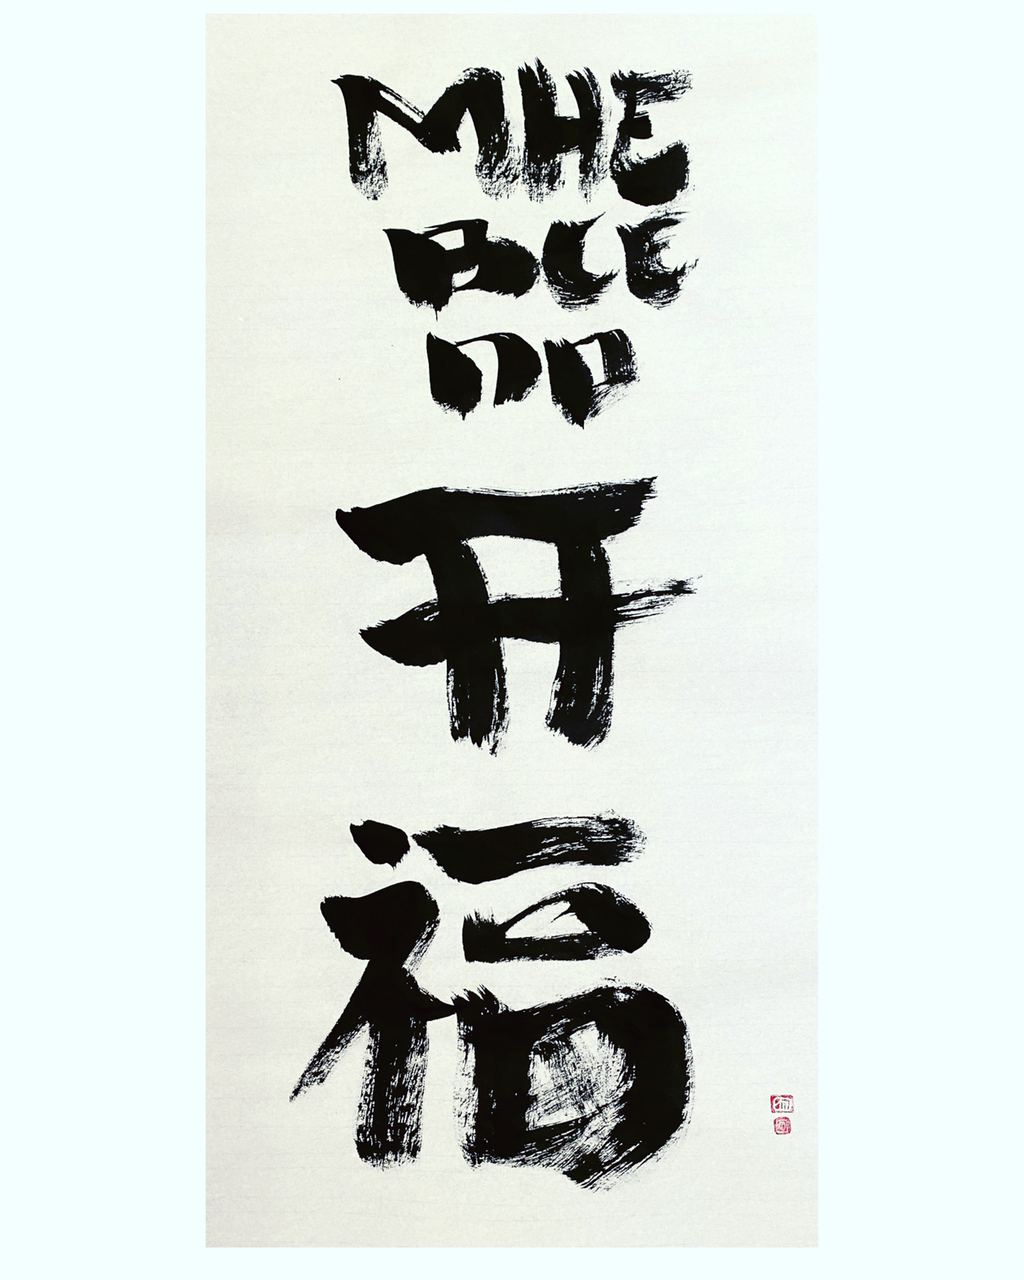 МНЕ
ВСЕ
ПО
开
福